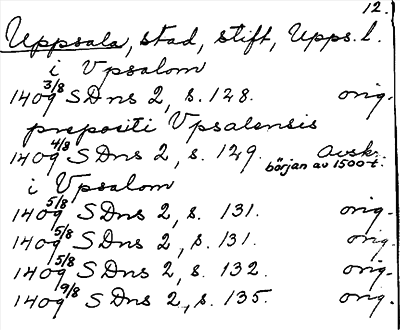 12.
Uppsala, stad, stift, Upps. l.
i Vpsalom
1409 3/8 SDns 2, s. 128. orig.
prepositi Vpsalensis
1409 4/8 SDns 2, s. 129. Avskr. början av 1500-t.
i Vpsalom
1409 5/8 SDns 2, s. 131. orig.
1409 5/8 SDns 2, s. 131. orig.
1409 5/8 SDns 2, s. 132. orig.
1409 9/8 SDns 2, s. 135. orig.